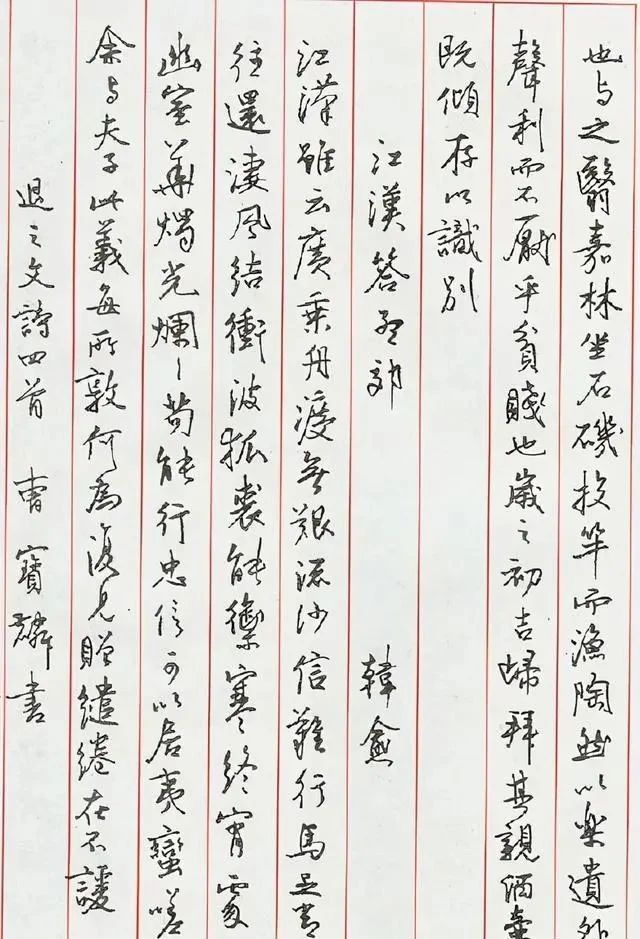 也与之翳嘉林坐石磯投竿而漁陶然以樂遺外
聲利而不厭乎貧賤也歲之初吉歸拜其親酒壺
既傾存以識別
江漢答孟郊 韓愈
江漢雖云廣乘舟渡無艱流沙信難行馬足常
往還淒風結衝波狐裘能禦寒終宵處
幽室華燭光爛〻苟能行忠信可以居夷蠻嗟
余与夫子此義每所敦何為復見贈繾綣在不諼
退之文詩四首 曹寶麟書